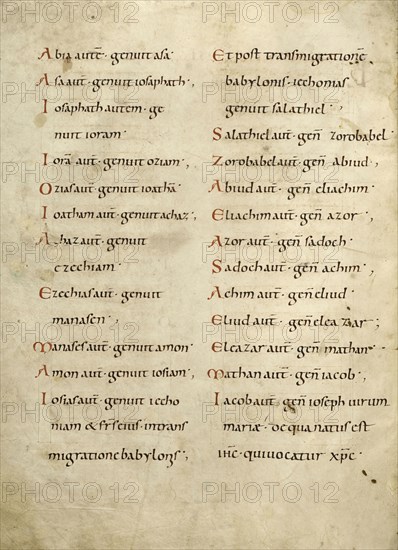 Abia aute͞· genuit asa·
Asa aut͞· genuit iosaphath·,
Iosaphath autem· ge
nuit ioram·
Iora͞ aut͞· genuit oziam·,
Ozias aut͞· genuit ioatha͞·
Ioatham aut͞· genuit achaz·,
Achaz aut͞· genuit
ezechiam·
Ezechias aut͞· genuit
manasen·,
Manases aut͞· genuit amon·
Amon aut͞· genuit iosiam·,
Iosias aut͞· genuit iecho
niam & fr͞s eius· in trans
migratione babylonis·,
Et post transmigratione͞
babylonis· iechonias
genuit salathiel·,
Salathiel aut͞· gen͞ zorobabel
Zorobabel aut͞· gen͞ abiud·,
Abiud aut͞· gen͞ eliachim·
Eliachim aut͞· gen͞ azor·,
Azor aut͞· gen͞ sadoch·
Sadoch aut͞· gen͞ achim·,
Achim aut͞· gen͞ eliud·
Eliud aut͞· gen͞ eleazar·,
Eleazar aut͞· gen͞ mathan·
Mathan aut͞· gen͞ iacob·,
Iacob aut͞· gen͞ ioseph virum
mariæ· de qua natus est
ih͞c· qui vocatur xp͞c·
PHOTO12